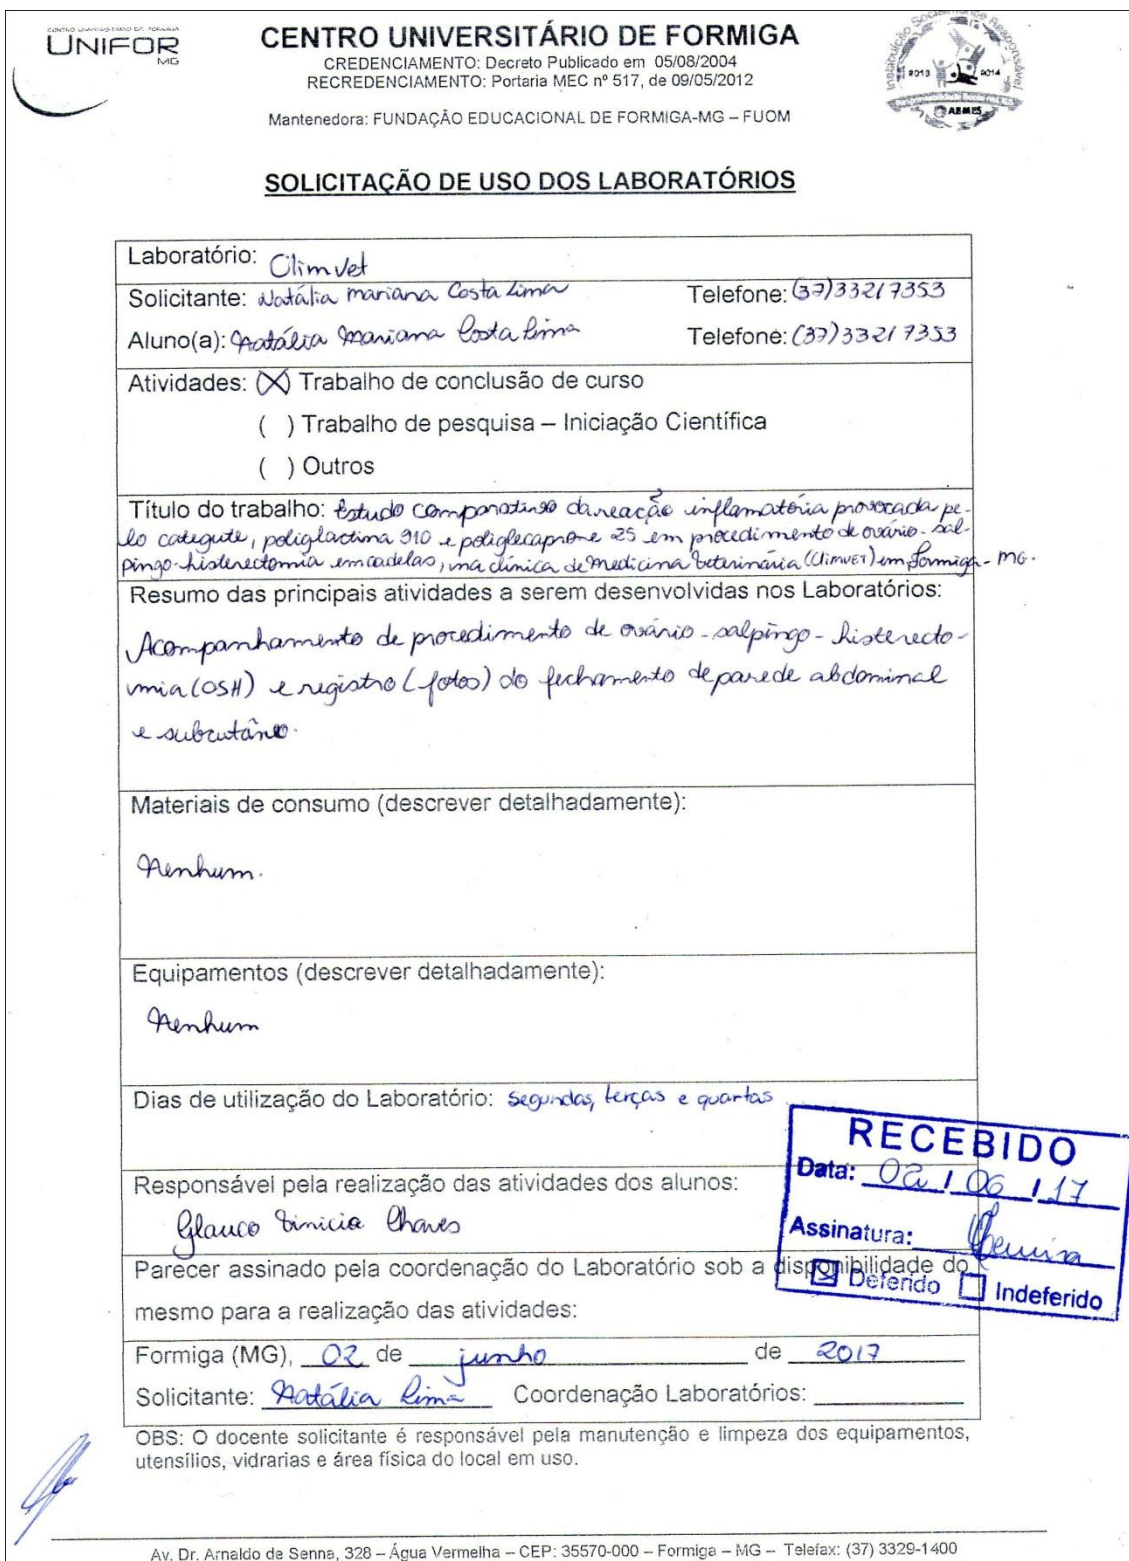 CENTRO UNIVERSITÁRIO DE FORMIGA
UNIFOR
MG
CENTRO UNIVERSITÁRIO DE FORMIGA
CREDENCIAMENTO: Decreto Publicado em 05/08/2004
RECREDENCIAMENTO: Portaria MEC nº 517, de 09/05/2012
Mantenedora: FUNDAÇÃO EDUCACIONAL DE FORMIGA-MG – FUOM
Instituição Socialmente Responsável
2013 2014
ABMES
SOLICITAÇÃO DE USO DOS LABORATÓRIOS
Laboratório: Climvet
Solicitante: Natália mariana Costa Lima Telefone: (37)33217353
Aluno(a): Natália Mariana Costa Lima Telefone: (37)33217353
Atividades: (X) Trabalho de conclusão de curso
( ) Trabalho de pesquisa – Iniciação Científica
( ) Outros
Título do trabalho: Estudo comparativo da reação inflamatória provocada pe-
lo categute, poliglactina 910 e poliglecaprone 25 em procedimento de ovário-sal-
pingo-histerectomia em cadelas, na clínica de Medicina Veterinária (Climvet) em Formiga-MG.
Resumo das principais atividades a serem desenvolvidas nos Laboratórios:
Acompanhamento de procedimento de ovário-salpingo-histerecto-
mia (OSH) e registro (fotos) do fechamento de parede abdominal
e subcutâneo.
Materiais de consumo (descrever detalhadamente):
Nenhum.
Equipamentos (descrever detalhadamente):
Nenhum
Dias de utilização do Laboratório: Segundas, terças e quartas
RECEBIDO
Data: 02 / 06 / 17
Assinatura:
[X] Deferido [ ] Indeferido
Responsável pela realização das atividades dos alunos:
Glauco Vinicio Chaves
Parecer assinado pela coordenação do Laboratório sob a disponibilidade do
mesmo para a realização das atividades:
Formiga (MG), 02 de junho de 2017
Solicitante: Natália Lima Coordenação Laboratórios:
OBS: O docente solicitante é responsável pela manutenção e limpeza dos equipamentos,
utensílios, vidrarias e área física do local em uso.
Av. Dr. Arnaldo de Senna, 328 – Água Vermelha – CEP: 35570-000 – Formiga – MG – Telefax: (37) 3329-1400